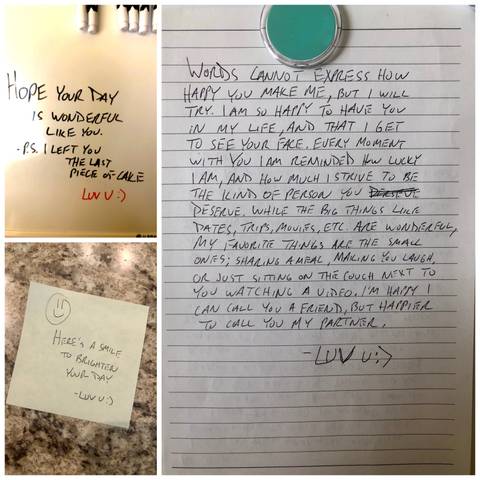 HOPE YOUR DAY
IS WONDERFUL
LIKE YOU.
-P.S. I LEFT YOU
THE LAST
PIECE OF CAKE
LUV U :)
HERE'S A SMILE
TO BRIGHTEN
YOUR DAY
-LUV U :)
WORDS CANNOT EXPRESS HOW
HAPPY YOU MAKE ME, BUT I WILL
TRY. I AM SO HAPPY TO HAVE YOU
IN MY LIFE, AND THAT I GET
TO SEE YOUR FACE. EVERY MOMENT
WITH YOU I AM REMINDED HOW LUCKY
I AM, AND HOW MUCH I STRIVE TO BE
THE KIND OF PERSON YOU
DESERVE. WHILE THE BIG THINGS LIKE
DATES, TRIPS, MOVIES, ETC. ARE WONDERFUL,
MY FAVORITE THINGS ARE THE SMALL
ONES; SHARING A MEAL, MAKING YOU LAUGH,
OR JUST SITTING ON THE COUCH NEXT TO
YOU WATCHING A VIDEO. I'M HAPPY I
CAN CALL YOU A FRIEND, BUT HAPPIER
TO CALL YOU MY PARTNER.
-LUV U :)